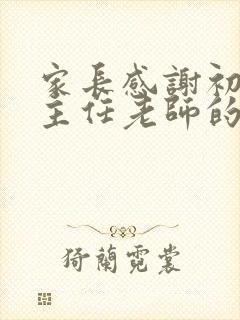 家長感謝初
主任老師的
猗蘭霓裳